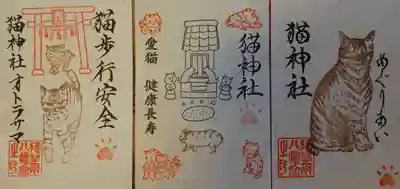 猫歩行安全
猫神社オトラサマ
猫神社
愛猫 健康長寿
めぐりあい
猫神社